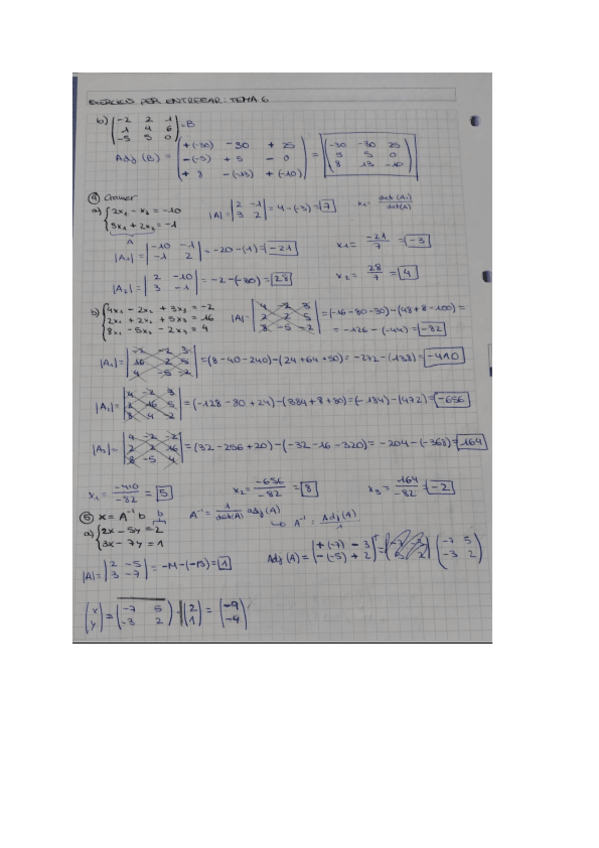 EXERCICIS PER ENTREGAR: TEMA 6
b) (-2 2 1 / 1 4 6 / -5 5 0) = B
Adj (B) = (+(-30) -30 +25 / -(-5) +5 -0 / +8 -(-13) +(-10)) = (-30 -30 25 / 5 5 0 / 8 13 -10)
④ Cramer
a) {2x₁ - x₂ = -10 / 3x₁ + 2x₂ = -1 |A| = |2 -1 / 3 2| = 4-(-3) = 7 x₁ = det(A₁)/det(A)
A
|A₁| = |-10 -1 / -1 2| = -20-(1) = -21 x₁ = -21/7 = -3
|A₂| = |2 -10 / 3 -1| = -2-(-30) = 28 x₂ = 28/7 = 4
b) {4x₁ - 2x₂ + 3x₃ = -2 / 2x₁ + 2x₂ + 5x₃ = 16 / 8x₁ - 5x₂ - 2x₃ = 4 |A| = |4 -2 3 / 2 2 5 / 8 -5 -2| = (-16-80-30)-(48+8-100) =
= -126-(-44) = -82
|A₁| = |-2 -2 3 / 16 2 5 / 4 -5 -2| = (8-40-240)-(24+64+50) = -272-(138) = -410
|A₂| = |4 -2 3 / 2 16 5 / 8 4 -2| = (-128-80+24)-(384+8+80) = (-184)-(472) = -656
|A₃| = |4 -2 -2 / 2 2 16 / 8 -5 4| = (32-256+20)-(-32-16-320) = -204-(-368) = 164
x₁ = -410/-82 = 5 x₂ = -656/-82 = 8 x₃ = 164/-82 = -2
⑤ x = A⁻¹ b A⁻¹ = 1/det(A) adj(A)
↳ A⁻¹ = Adj(A)/1
a) {2x - 5y = 2 / 3x - 7y = 1
b
|A| = |2 -5 / 3 -7| = -14-(-15) = 1 Adj (A) = (+(-7) -3 / -(-5) +2)ᵀ = (-7 5 / -3 2)
(x / y) = (-7 5 / -3 2) · (2 / 1) = (-9 / -4)